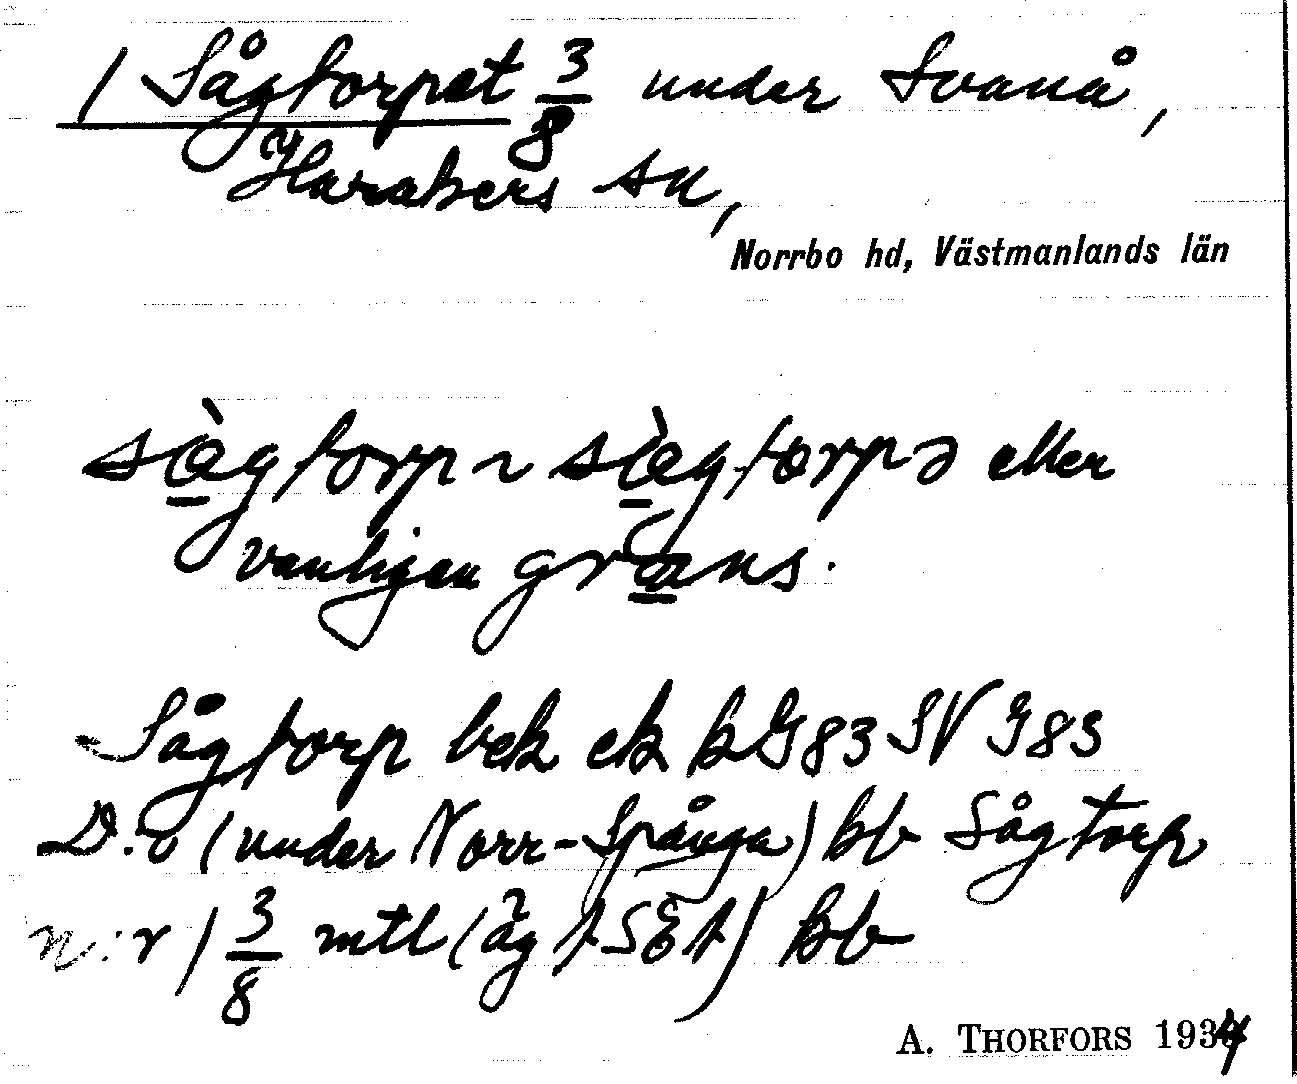 / Sågtorpet 3/8 under Svanå,
Harakers sn,
Norrbo hd, Västmanlands län
sàgtorp ~ sàgtorpə eller
vanligen gràns.
Sågtorp bek ek kG83 SV G83
D:o (under Norr-Spånga) kb Sågtorp
n:r 1 3/8 mtl (äg t S E t) kb
A. THORFORS 1934